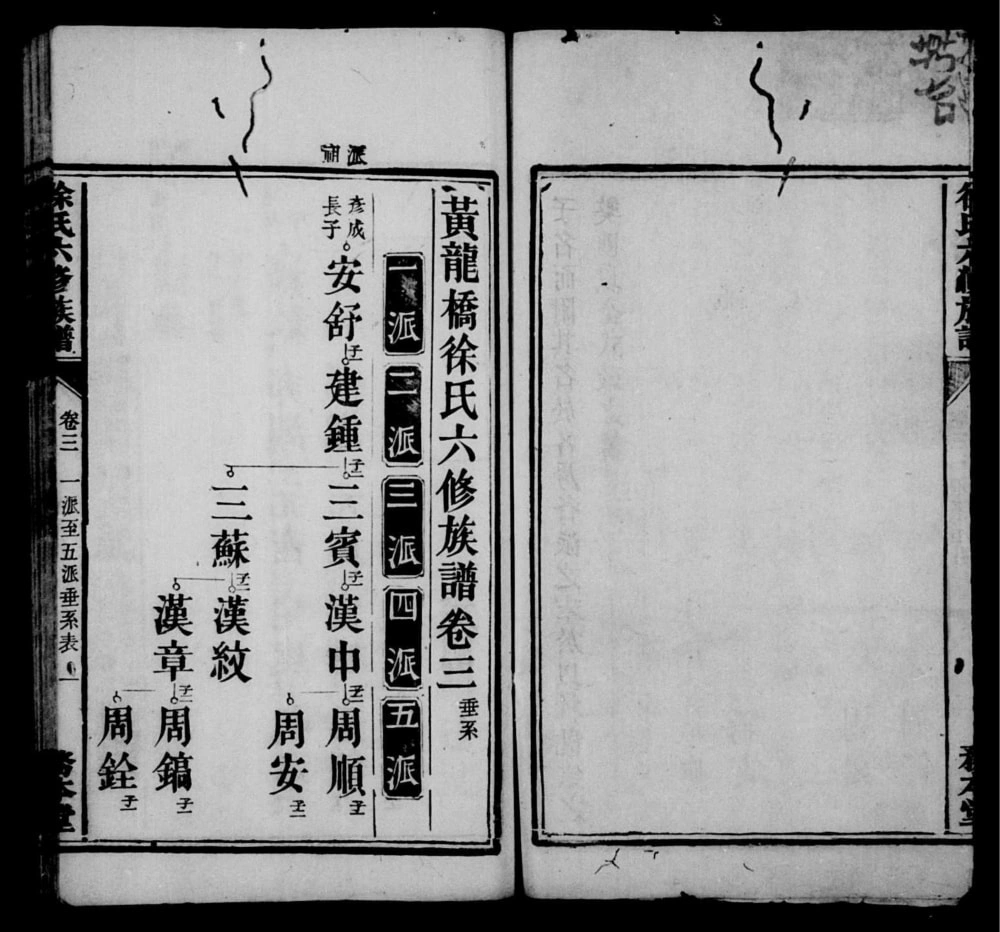 徐氏六修族譜
務本堂
黃龍橋徐氏六修族譜卷三 垂系
一派 二派 三派 四派 五派
派祖
彥成
長子
安舒 子一 建鍾 子二 三賓 子一 漢中 子二 周順
周安
三蘇 子二 漢紋
漢章 子二 周鎬
周銓
徐氏六修族譜
卷三
一派至五派垂系表
一
務本堂